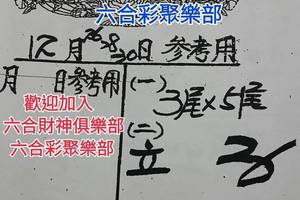 六合彩聚樂部
12月26.28.30日參考用
月 日參考用
(一)
3尾×5尾
歡迎加入
六合財神俱樂部
六合彩聚樂部
(二)
立